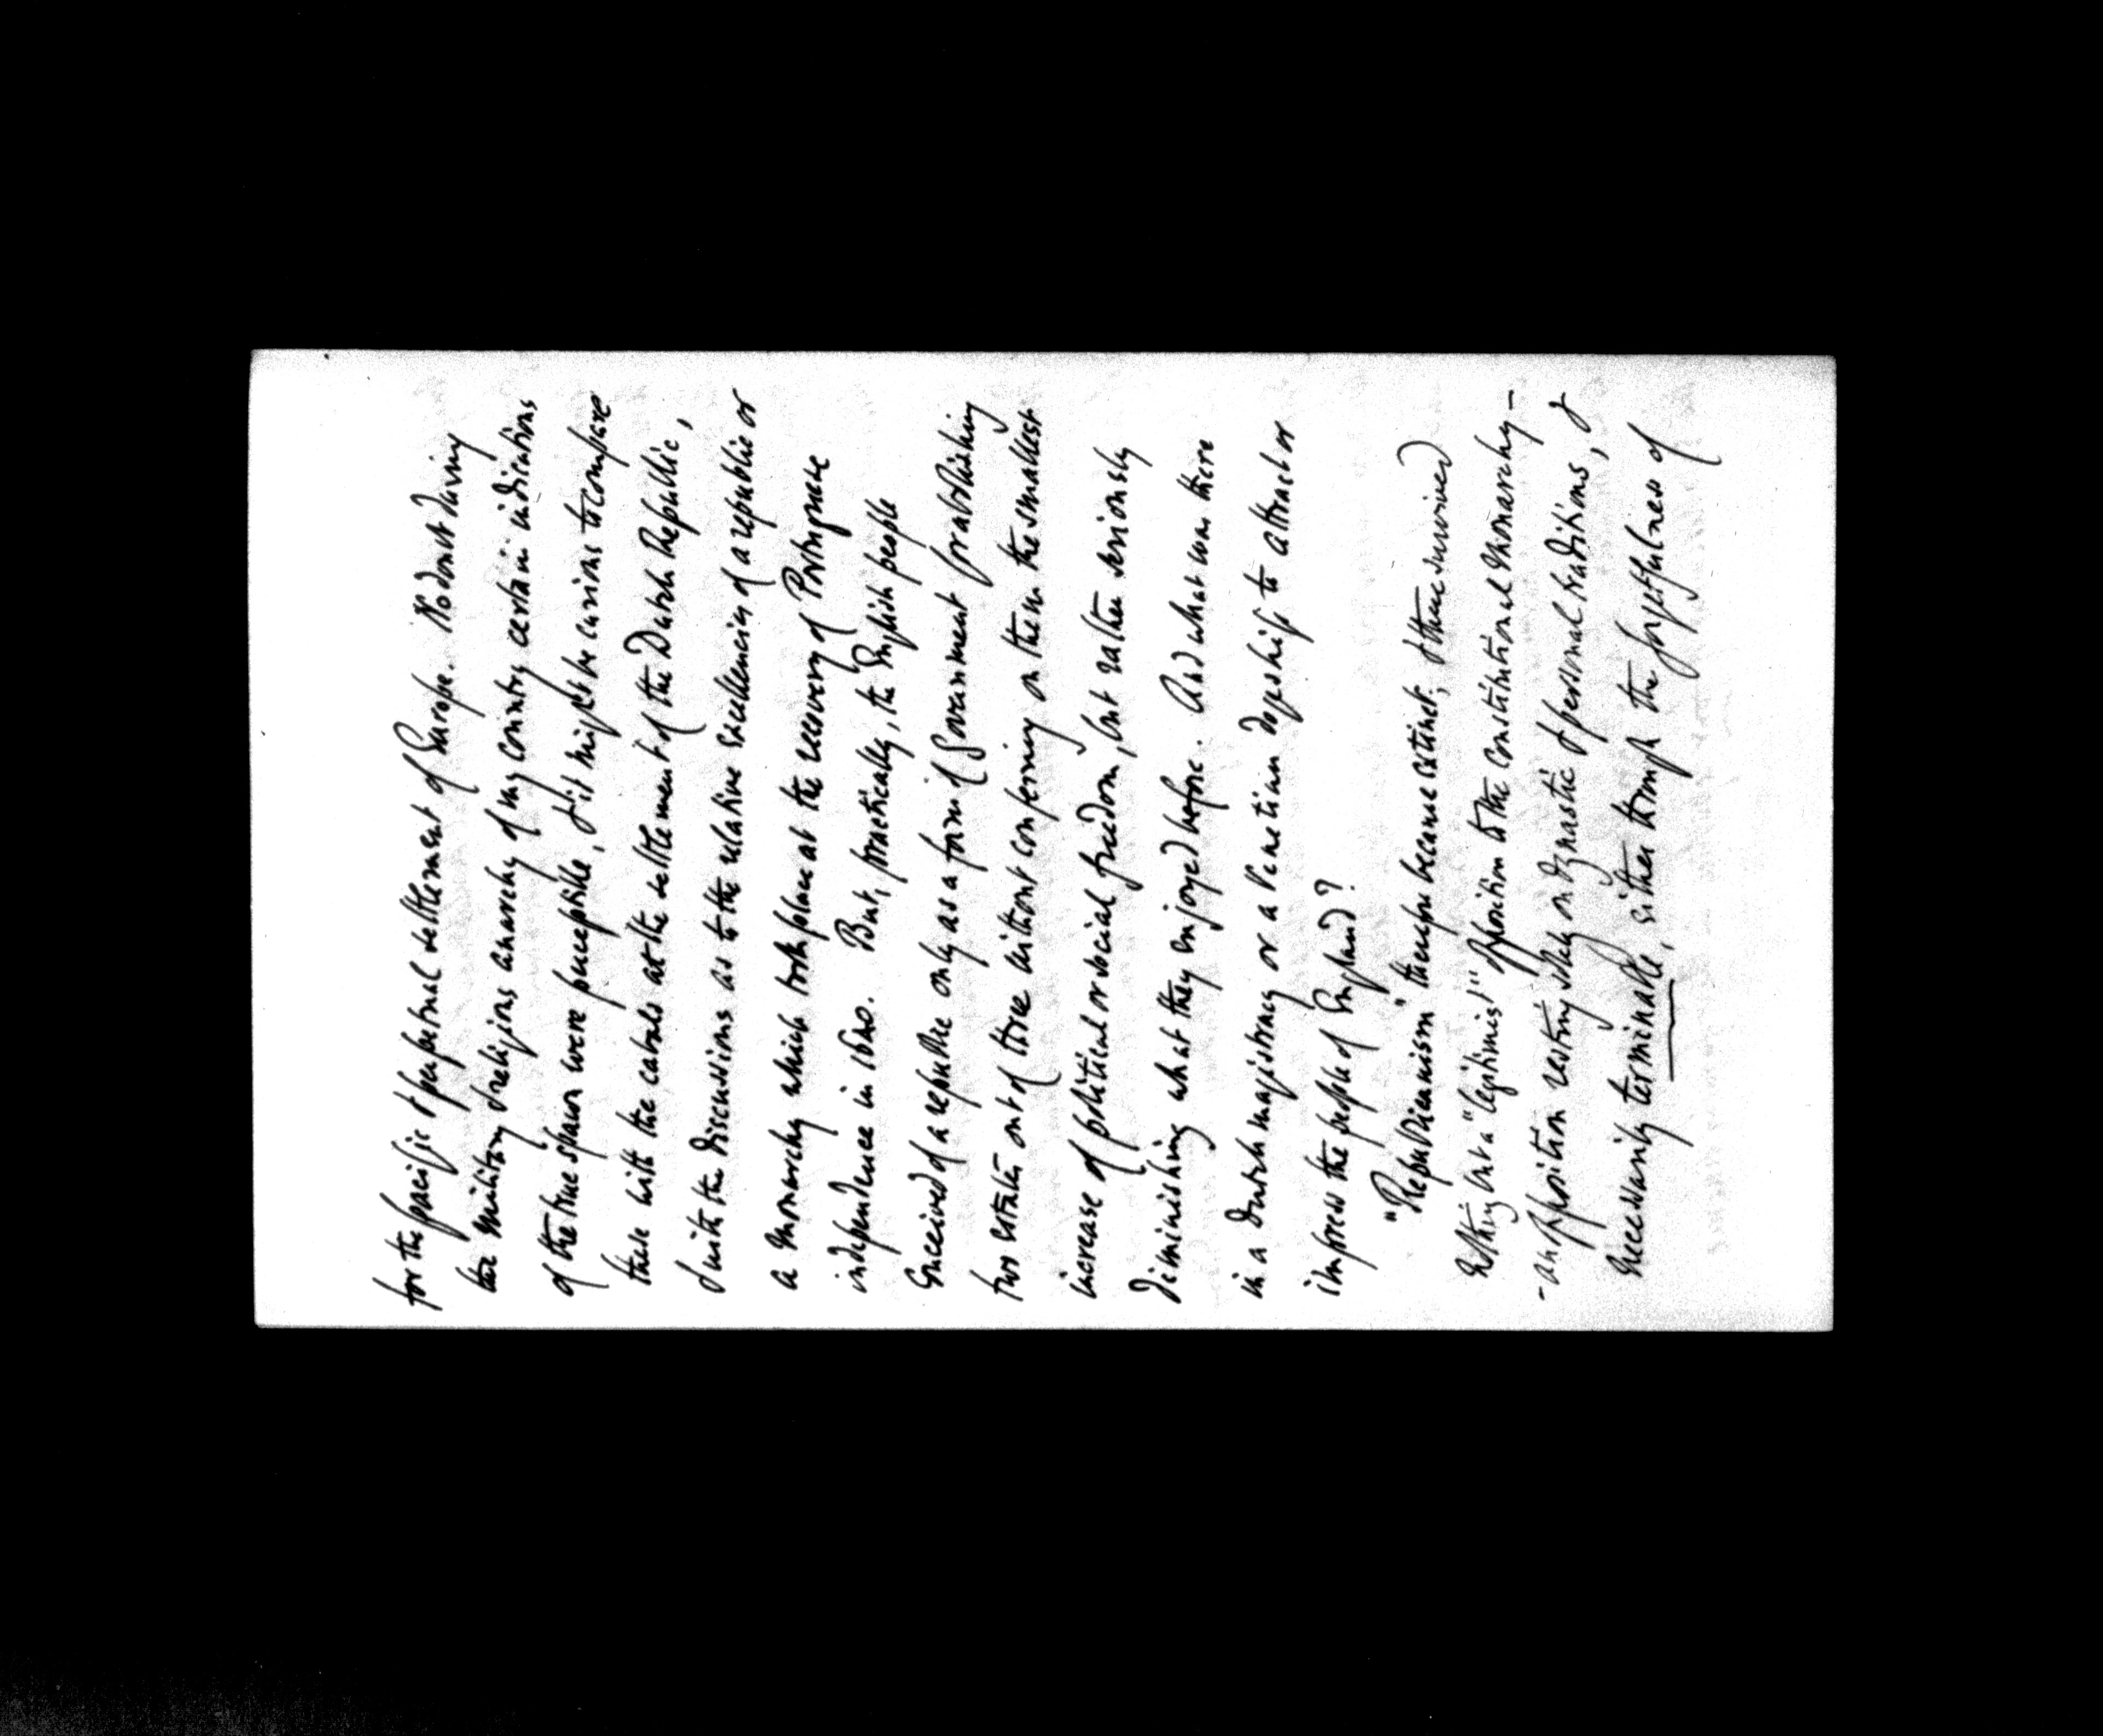 for the pacific & perpetual settlement of Europe. No doubt during
the military & religious anarchy of my country certain indications
of the true spawn were perceptible, & it might be curious to compare
these with the cabals at the settlement of the Dutch Republic,
& with the discussions as to the relative excellencies of a republic or
a monarchy which took place at the recovery of Portuguese
independence in 1640. But, practically, the English people
conceived of a republic only as a form of Government for abolishing
two estates out of three without conferring on them the smallest
increase of political or social freedom, but rather seriously
diminishing what they enjoyed before. And what was there
in a Dutch magistracy or a Venetian dogeship to attract or
impress the people of England?
"Republicanism" therefore became extinct; & there survived
nothing but a "legitimist" opposition to the Constitutional Monarchy –
– an opposition resting solely on dynastic & personal traditions, &
necessarily terminable, either through the forgetfulness of